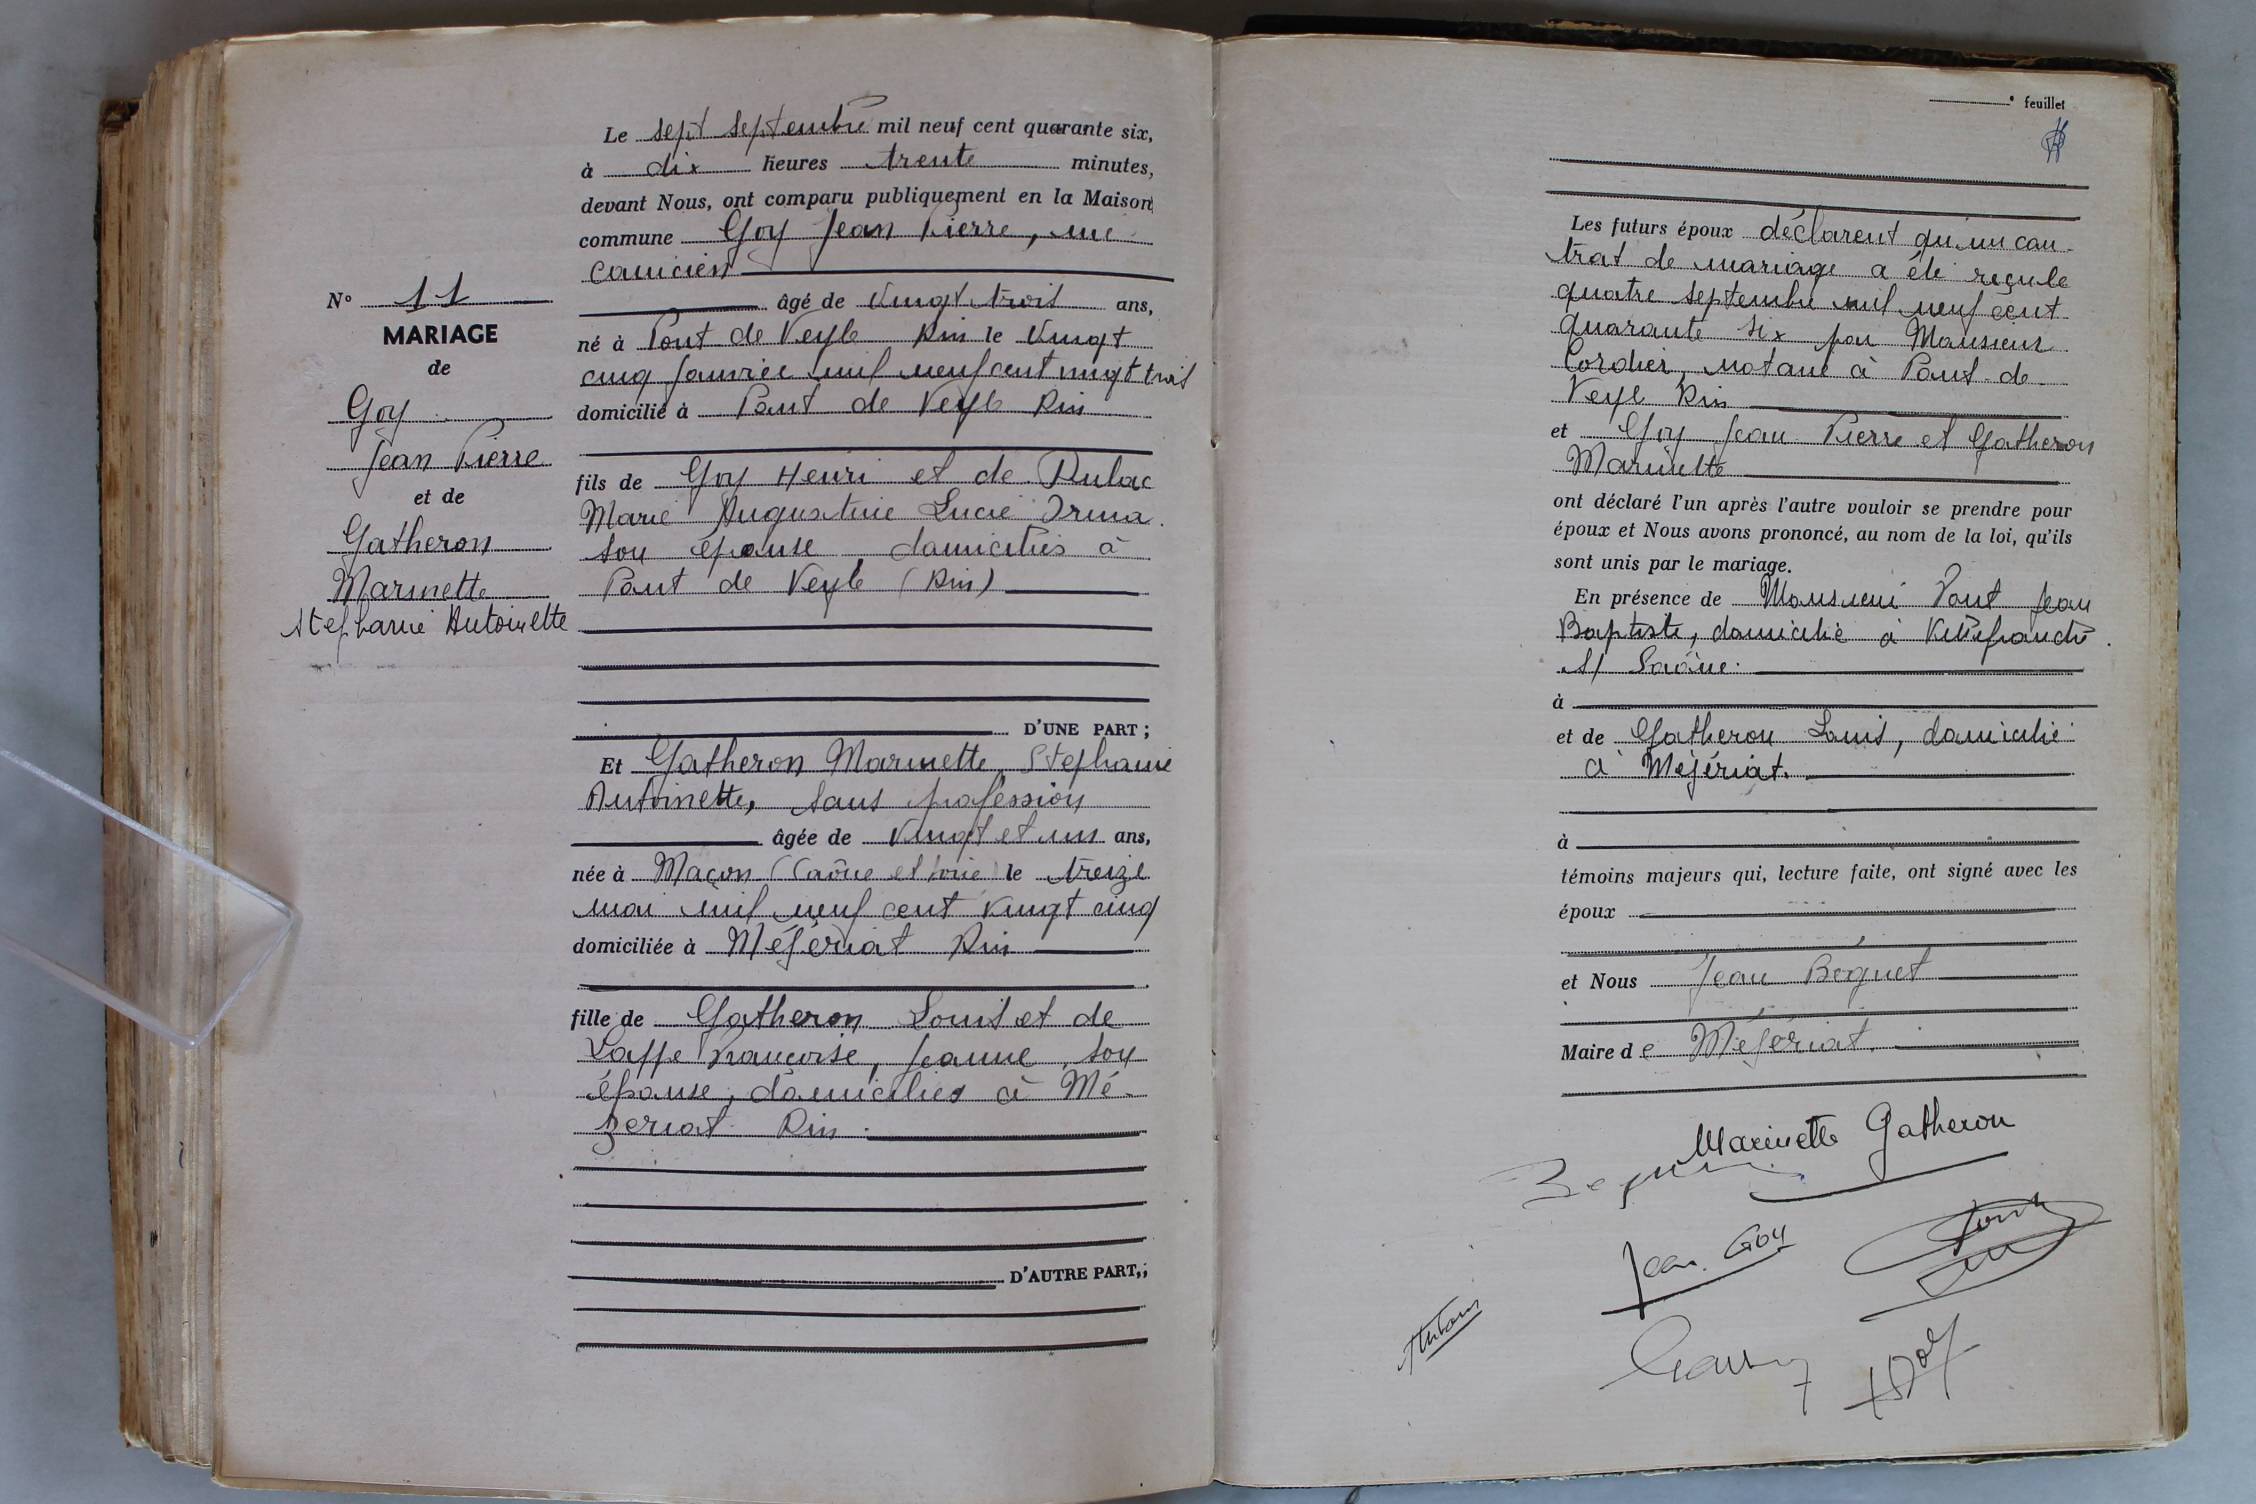 N° 11
MARIAGE
de
Goy
Jean Pierre
et de
Gatheron
Marinette
Stephanie Antoinette
Le sept septembre mil neuf cent quarante six,
à dix heures trente minutes,
devant Nous, ont comparu publiquement en la Maison
commune Goy Jean Pierre, mé
canicien
âgé de vingt trois ans,
né à Pont de Veyle Ain le vingt
cinq janvier mil neuf cent vingt trois
domicilié à Pont de Veyle Ain
fils de Goy Henri et de Dulac
Marie Augustine Lucie Irma
son épouse domiciliés à
Pont de Veyle (Ain)
D'UNE PART ;
Et Gatheron Marinette, Stephanie
Antoinette, sans profession
âgée de vingt et un ans,
née à Macon (Saône et Loire) le treize
mai mil neuf cent vingt cinq
domiciliée à Mézériat Ain
fille de Gatheron Louis et de
Françoise, Jeanne son
épouse, domiciliés à Mé-
zeriat Ain.
D'AUTRE PART,;
feuillet
Les futurs époux déclarent qu'un con-
trat de mariage a été reçu le
quatre septembre mil neuf cent
quarante six par Monsieur
Cordier, notaire à Pont-de-
Veyle Ain
et Goy Jean Pierre et Gatheron
Marinette
ont déclaré l'un après l'autre vouloir se prendre pour
époux et Nous avons prononcé, au nom de la loi, qu'ils
sont unis par le mariage.
En présence de Monsieur Pont Jean
Baptiste, domicilié à Villefranche
s/ Saône.
à
et de Gatheron Louis, domicilié
à Mézériat.
à
témoins majeurs qui, lecture faite, ont signé avec les
époux
et Nous Jean Béguet
Maire de Mézériat.
Marinette Gatheron
Jean Goy